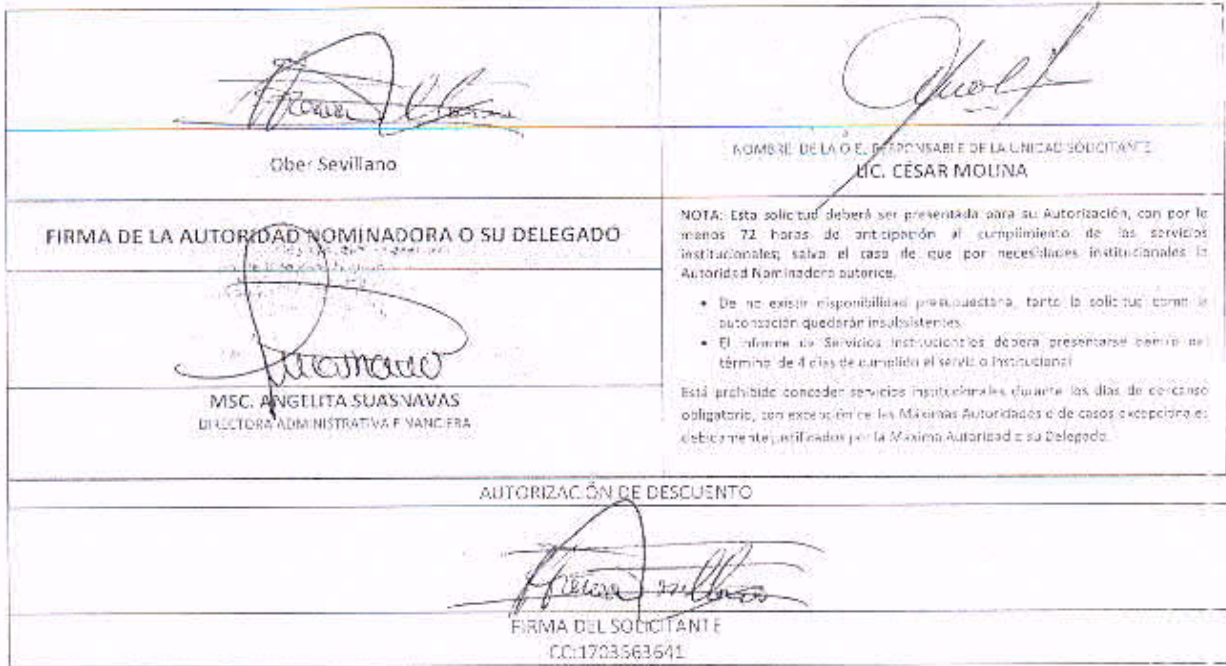 Ober Sevillano
NOMBRE DE LA O EL RESPONSABLE DE LA UNIDAD SOLICITANTE
LIC. CÉSAR MOLINA
FIRMA DE LA AUTORIDAD NOMINADORA O SU DELEGADO
MSC. ANGELITA SUASNAVAS
DIRECTORA ADMINISTRATIVA FINANCIERA
NOTA: Esta solicitud deberá ser presentada para su Autorización, con por lo
menos 72 horas de anticipación al cumplimiento de los servicios
institucionales; salvo el caso de que por necesidades institucionales la
Autoridad Nominadora autorice.
• De no existir disponibilidad presupuestaria, tanto la solicitud como la
autorización quedarán insubsistentes
• El informe de Servicios Institucionales deberá presentarse dentro del
término de 4 días de cumplido el servicio institucional
Está prohibido conceder servicios institucionales durante los días de descanso
obligatorio, con excepción de las Máximas Autoridades o de casos excepcionales
debidamente justificados por la Máxima Autoridad o su Delegado.
AUTORIZACIÓN DE DESCUENTO
FIRMA DEL SOLICITANTE
CC:1703563641